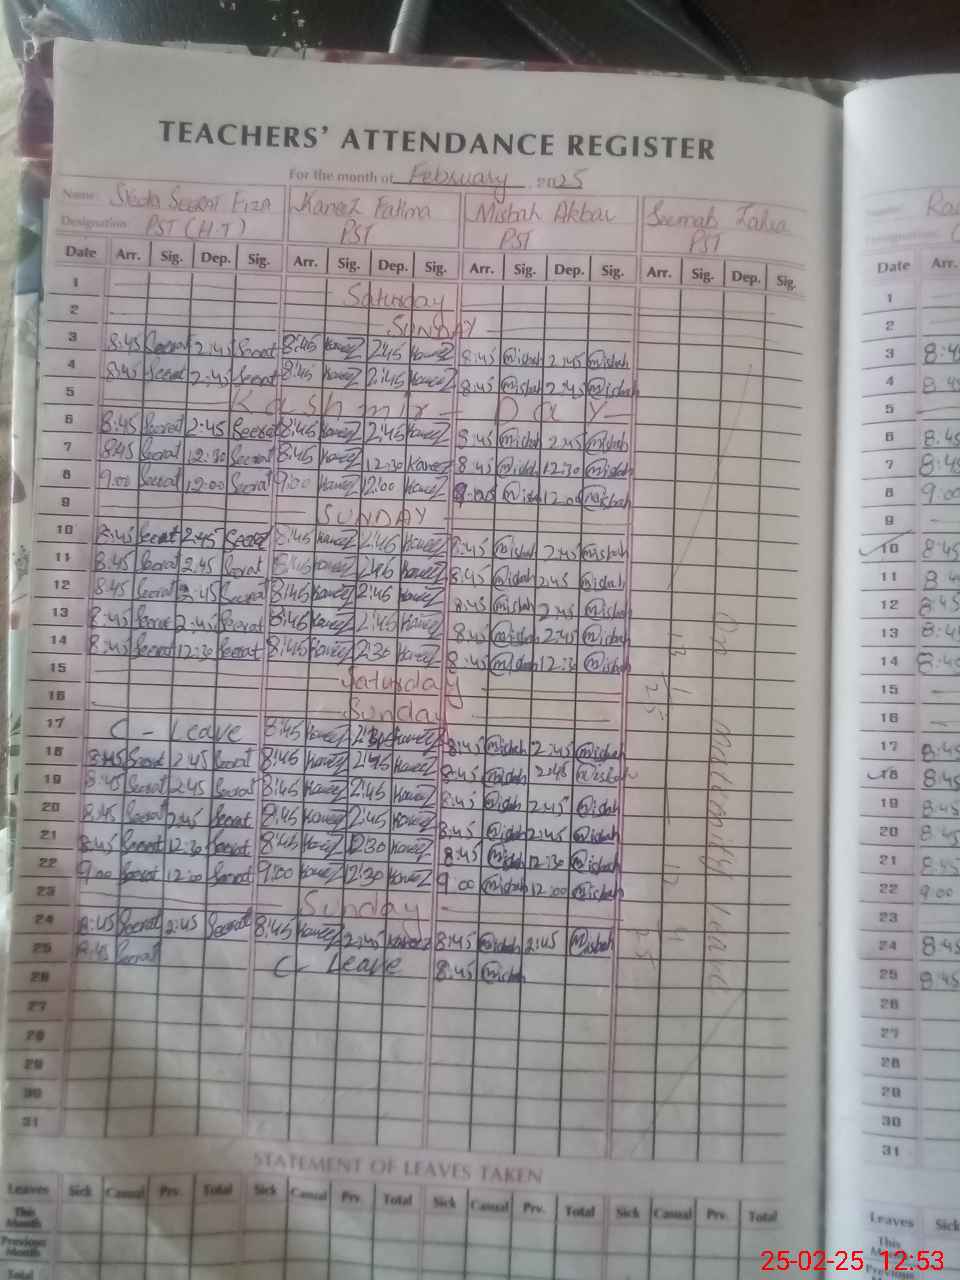 TEACHERS' ATTENDANCE REGISTER
For the month of February, 2025
Name: Seerat Fiza Kaneez Fatima Misbah Akbar Seemab Zahra
Designation PST (H.T) PST PST PST
Date Arr. Sig. Dep. Sig. Arr. Sig. Dep. Sig. Arr. Sig. Dep. Sig. Arr. Sig. Dep. Sig.
1 Saturday
2 SUNDAY
3 8:45 Seerat 2:45 Seerat 8:45 Kaneez 2:45 Kaneez 8:45 Misbah 2:45 Misbah
4 8:45 Seerat 2:45 Seerat 8:45 Kaneez 2:45 Kaneez 8:45 Misbah 2:45 Misbah
5 Kashmir Day
6 8:45 Seerat 2:45 Seerat 8:45 Kaneez 2:45 Kaneez 8:45 Misbah 2:45 Misbah
7 8:45 Seerat 12:30 Seerat 8:45 Kaneez 12:30 Kaneez 8:45 Misbah 12:30 Misbah
8 9:00 Seerat 12:00 Seerat 9:00 Kaneez 12:00 Kaneez 9:00 Misbah 12:00 Misbah
9 SUNDAY
10 8:45 Seerat 2:45 Seerat 8:45 Kaneez 2:45 Kaneez 8:45 Misbah 2:45 Misbah
11 8:45 Seerat 2:45 Seerat 8:45 Kaneez 2:45 Kaneez 8:45 Misbah 2:45 Misbah
12 8:45 Seerat 2:45 Seerat 8:45 Kaneez 2:45 Kaneez 8:45 Misbah 2:45 Misbah
13 8:45 Seerat 2:45 Seerat 8:45 Kaneez 2:45 Kaneez 8:45 Misbah 2:45 Misbah
14 8:45 Seerat 12:30 Seerat 8:45 Kaneez 2:30 Kaneez 8:45 Misbah 12:30 Misbah
15 Saturday
16 Sunday
17 C - Leave 8:45 Kaneez Kaneez 8:45 Misbah 2:45 Misbah
18 8:45 Seerat 2:45 Seerat 8:45 Kaneez 2:45 Kaneez 8:45 Misbah 2:45 Misbah
19 8:45 Seerat 2:45 Seerat 8:45 Kaneez 2:45 Kaneez 8:45 Misbah 2:45 Misbah
20 8:45 Seerat 2:45 Seerat 8:45 Kaneez 2:45 Kaneez 8:45 Misbah 2:45 Misbah
21 8:45 Seerat 12:30 Seerat 8:45 Kaneez 12:30 Kaneez 8:45 Misbah 12:30 Misbah
22 9:00 Seerat 12:00 Seerat 9:00 Kaneez 12:30 Kaneez 9:00 Misbah 12:00 Misbah
23 Sunday
24 8:45 Seerat 2:45 Seerat 8:45 Kaneez 2:45 Kaneez 8:45 Misbah 2:45 Misbah
25 8:45 Seerat C - Leave 8:45 Misbah
26
27
28
29
30
31
On Maternity Leave
STATEMENT OF LEAVES TAKEN
Leaves Sick Casual Prv. Total Sick Casual Prv. Total Sick Casual Prv. Total Sick Casual Prv. Total
This Month
Previous Month
Total
Date Arr.
1
2
3 8:4
4 8:4
5
6 8:45
7 8:45
8 9:00
9
10 8:45
11 8:4
12 8:45
13 8:4
14 8:4
15
16
17 8:45
18 8:45
19 8:45
20 8:45
21 8:45
22 9:00
23
24 8:45
25 8:45
26
27
28
29
30
31
Leaves Sick
This Month
Previous
25-02-25 12:53